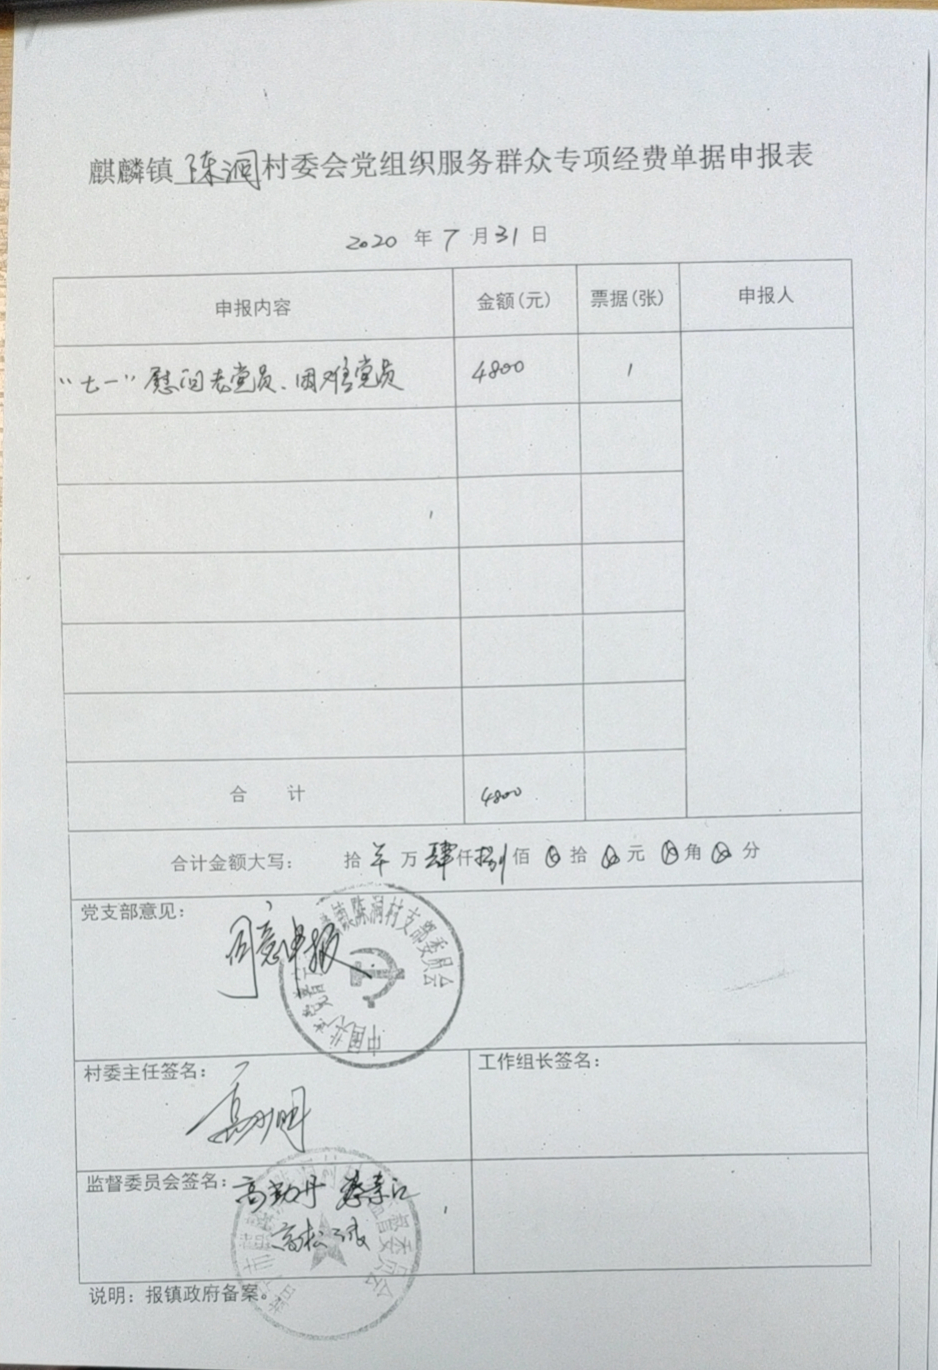 麒麟镇陈洞村委会党组织服务群众专项经费单据申报表
2020 年 7 月 31 日
申报内容 金额(元) 票据(张) 申报人
“七一”慰问老党员、困难党员 4800 1
合 计 4800
合计金额大写: 拾 万 肆仟捌佰 拾 元 角 分
党支部意见:
同意申报
镇陈洞村支部委员会
中国共
村委主任签名: 工作组长签名:
监督委员会签名:
高松
督委员会
说明: 报镇政府备案。